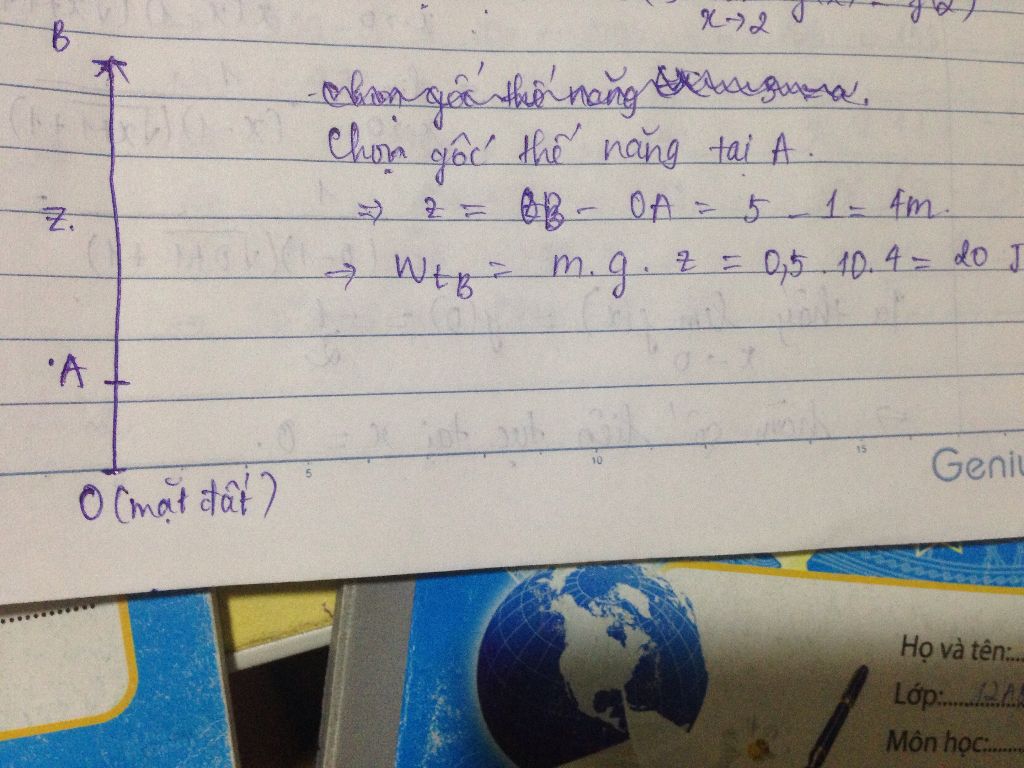 x→2
B
Chọn gốc thế năng
Chọn gốc thế năng tại A.
⇒ z = OB - OA = 5 - 1 = 4m.
Z.
⇒ WtB = m.g.z = 0,5.10.4 = 20 J
A
5 10 15
Geniu
O (mặt đất)
Họ và tên:...
Lớp:
Môn học: